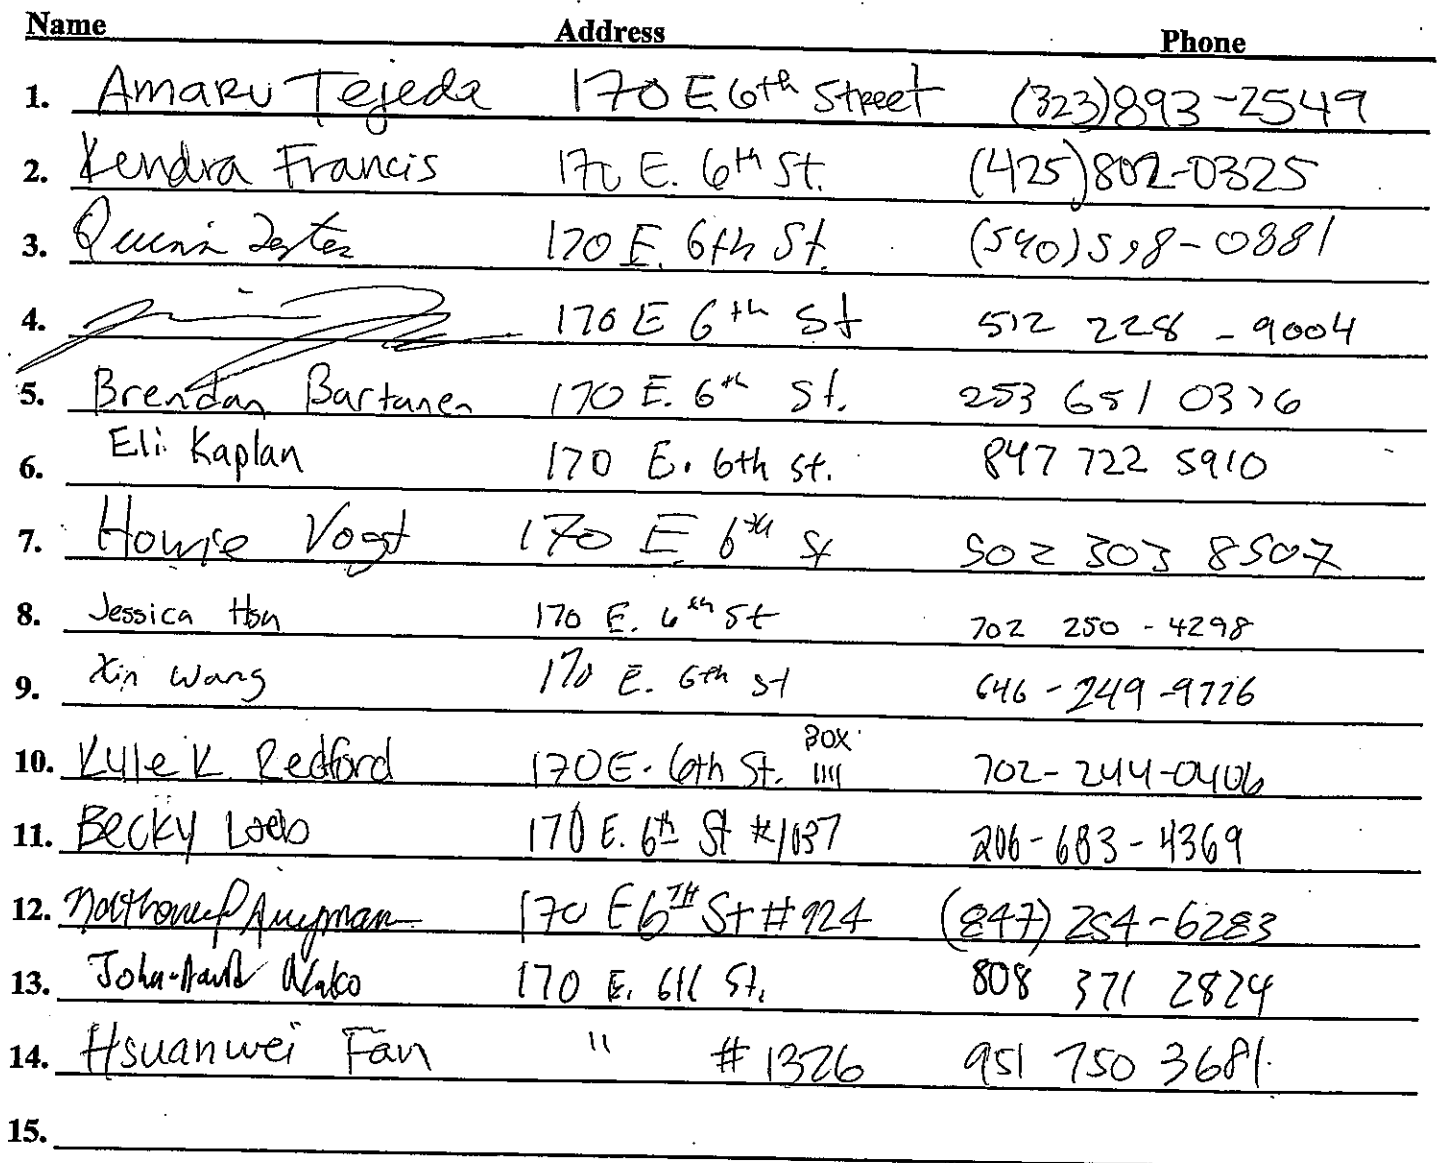 Name Address Phone
1. Amaru Tejeda 170 E 6th Street (323)893-2549
2. Kendra Francis 170 E. 6th St. (425)802-0325
3. Quinn 170 E. 6th St. (540)598-0881
4. 170 E 6th St 512 228 - 9004
5. Brendan Bartanen 170 E. 6th St. 253 651 0376
6. Eli Kaplan 170 E. 6th St. 847 722 5910
7. Howie Vogt 170 E 6th St 502 303 8507
8. Jessica Hsu 170 E. 6th St 702 250 - 4298
9. Xin Wang 170 E. 6th St 646 - 249 -9726
10. Kyle K. Redford 170 E. 6th St. BOX 1111 702-244-0406
11. Becky Loeb 170 E. 6th St #1037 206-683-4369
12. 170 E 6TH St #924 (847) 254-6283
13. John-David 170 E. 6th St. 808 371 2824
14. Hsuanwei Fan " #1326 951 750 3681
15.